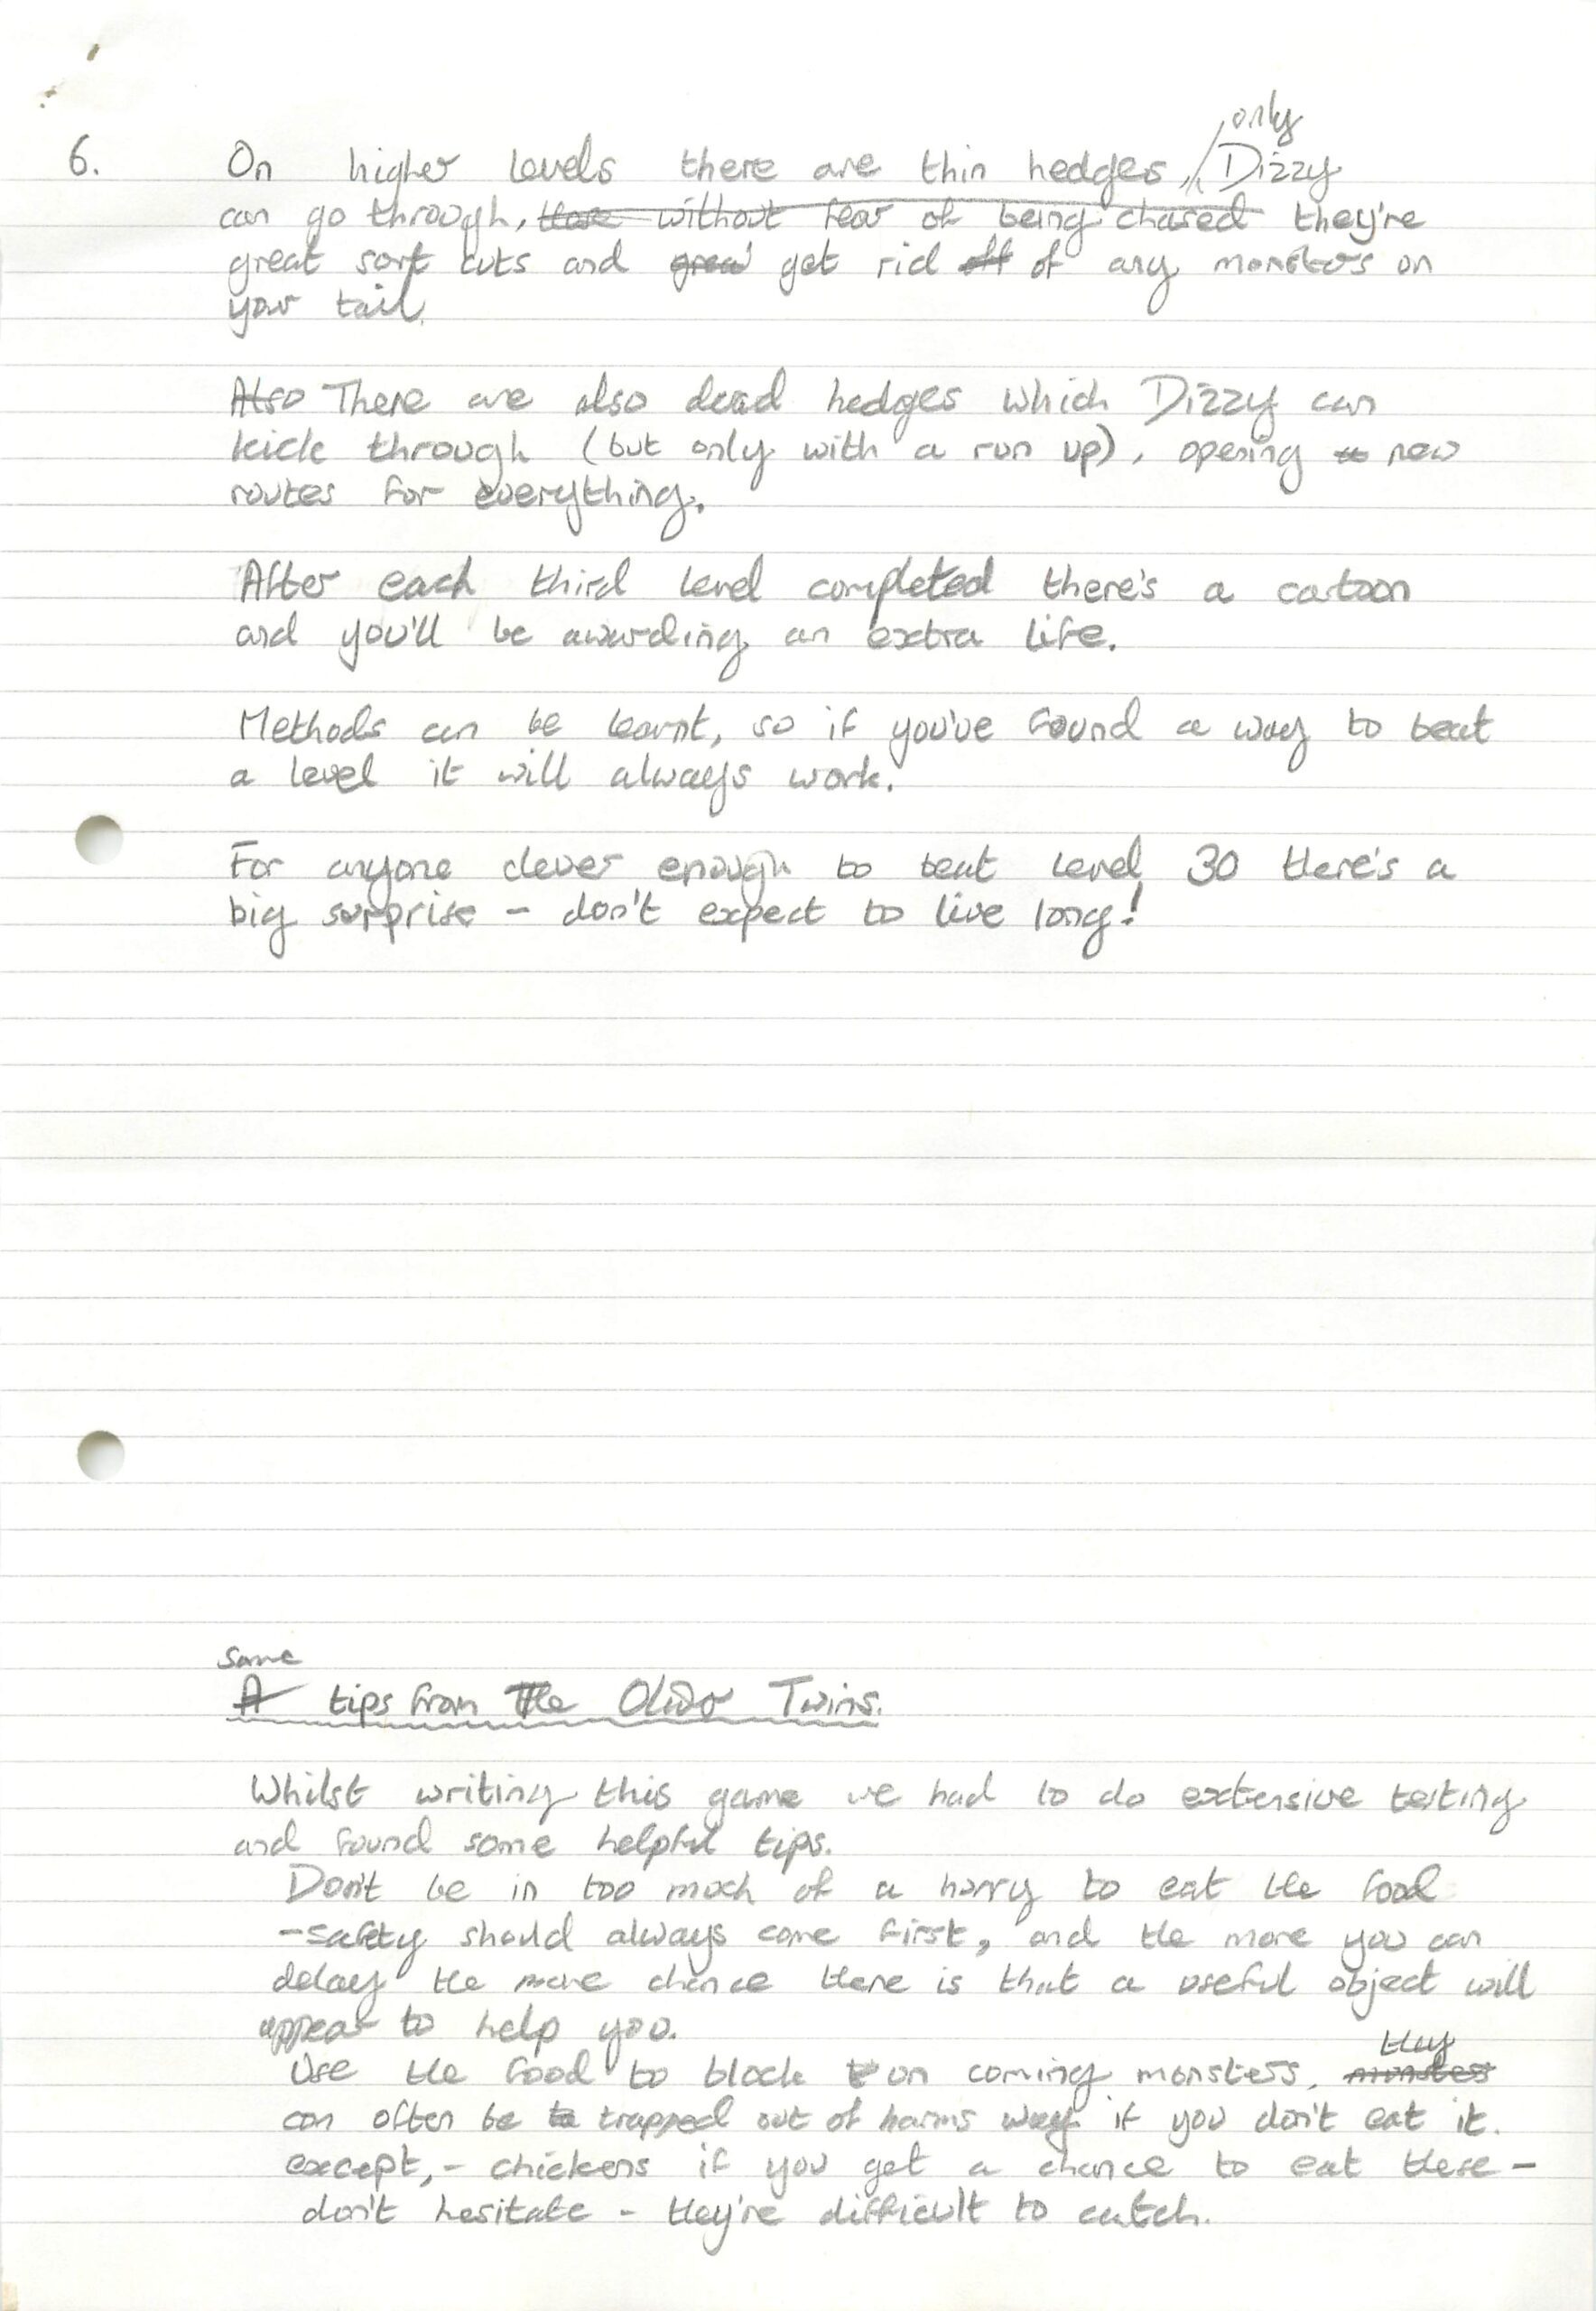 only
6. On higher levels there are thin hedges, Dizzy
can go through, without fear of being chased they're
great sort cuts and great get rid off of any monsters on
your tail.
Also There are also dead hedges which Dizzy can
kick through (but only with a run up), opening to new
routes for everything.
After each third level completed there's a cartoon
and you'll be awarding an extra life.
Methods can be learnt, so if you've found a way to beat
a level it will always work.
For anyone clever enough to beat level 30 there's a
big surprise - don't expect to live long!
Some
A tips from The Oliver Twins.
Whilst writing this game we had to do extensive testing
and found some helpful tips.
Don't be in too much of a hurry to eat the food
-safety should always come first, and the more you can
delay the more chance there is that a useful object will
appear to help you.
they
Use the food to block on coming monsters, monsters
can often be to trapped out of harms way if you don't eat it.
except, - chickens if you get a chance to eat these -
don't hesitate - they're difficult to catch.